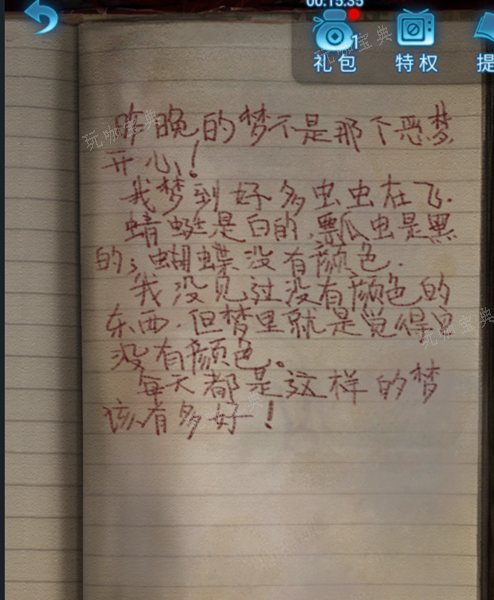 00:15:35
1
礼包
特权
提
昨晚的梦不是那个恶梦
开心!
我梦到好多虫虫在飞.
蜻蜓是白的,瓢虫是黑
的;蝴蝶没有颜色.
我没见过没有颜色的
东西.但梦里就是觉得它
没有颜色。
每天都是这样的梦
该有多好!
玩咖宝典
玩咖宝典
玩咖宝典